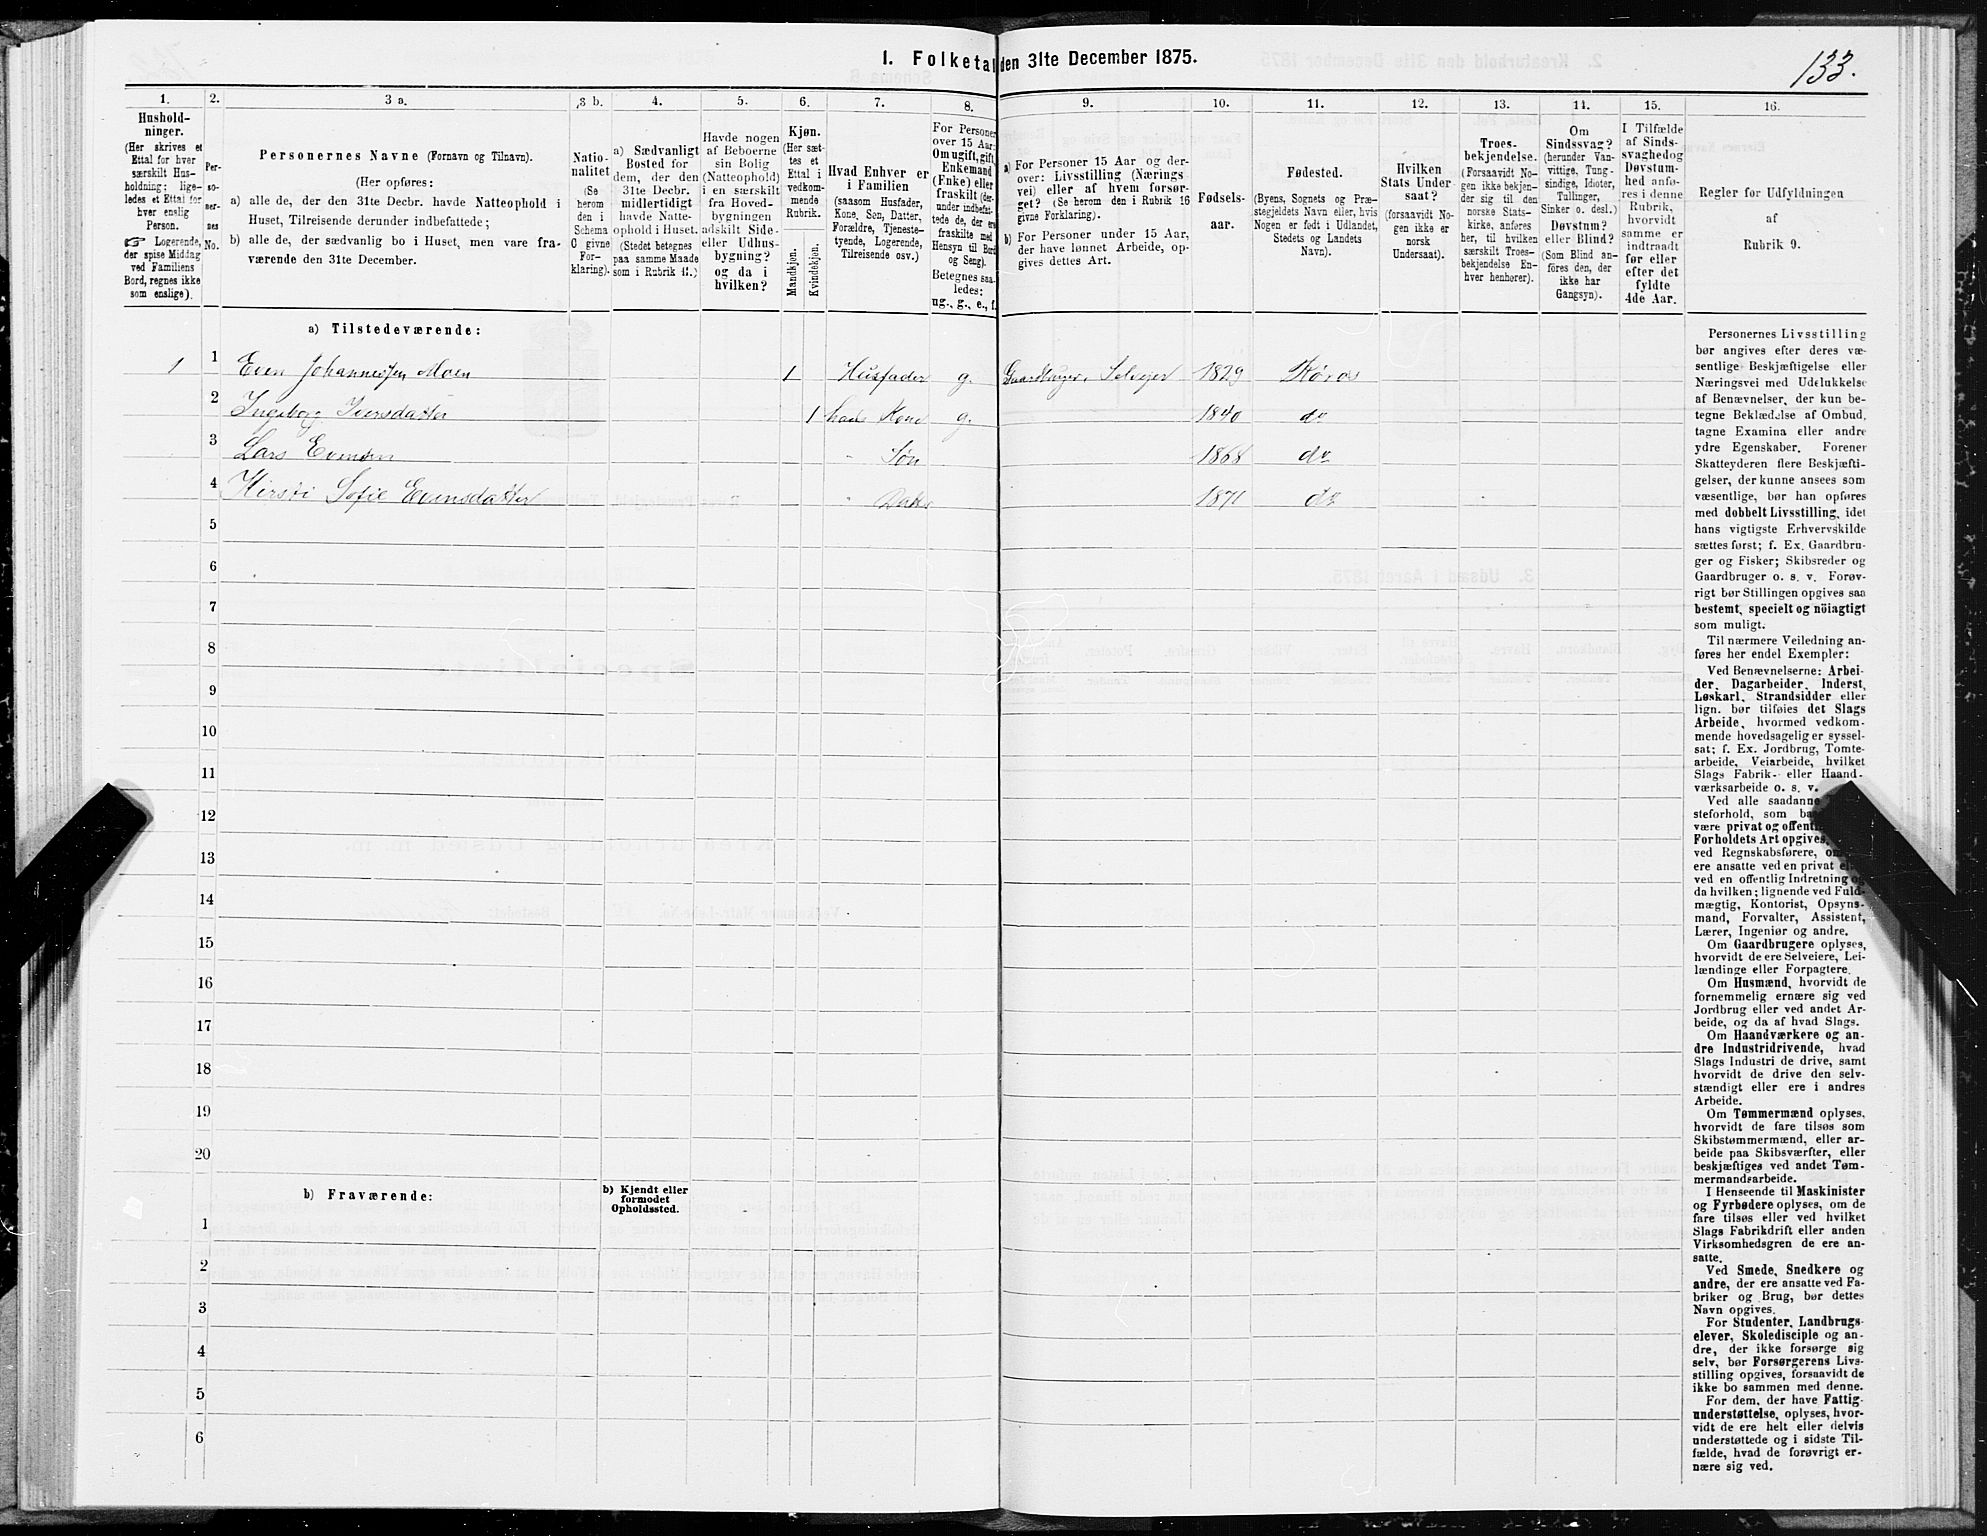 133.
1. Folketal den 31te December 1875.
1. 2. 3 a. 3 b. 4. 5. 6. 7. 8. 9. 10. 11. 12. 13. 14. 15. 16.
Hushold-
ninger.
(Her skrives et
Ettal for hver
særskilt Hus-
holdning; lige-
ledes et Ettal for
hver enslig
Person.
☞ Logerende,
der spise Middag
ved Familiens
Bord, regnes ikke
som enslige).
Per-
so-
ner-
nes
No.
Personernes Navne (Fornavn og Tilnavn).
(Her opføres:
a) alle de, der den 31te Decbr. havde Natteophold i
Huset, Tilreisende derunder indbefattede;
b) alle de, der sædvanlig bo i Huset, men vare fra-
værende den 31te December.
Natio-
nalitet
(Se
herom
den i
Schema
C givne
For-
klaring).
a) Sædvanligt
Bosted for
dem, der den
31te Decbr.
midlertidigt
havde Natte-
ophold i Huset.
(Stedet betegnes
paa samme Maade
som i Rubrik 11.)
Havde nogen
af Beboerne
sin Bolig
(Natteophold)
i en særskilt
fra Hoved-
bygningen
adskilt Side-
eller Udhus-
bygning?
og da i
hvilken?
Kjøn.
(Her sæt-
tes et
Ettal i
vedkom-
mende
Rubrik.
Mandkjøn.
Kvindekjøn.
Hvad Enhver er
i Familien
(saasom Husfader,
Kone, Søn, Datter,
Forældre, Tjeneste-
tyende, Logerende,
Tilreisende osv.)
For Personer
over 15 Aar:
Om ugift, gift,
Enkemand
(Enke) eller
fraskilt (der-
under indbefat-
tede de, der ere
fraskilte med
Hensyn til Bord
og Seng).
Betegnes saa-
ledes:
ug., g., e., f.
a) For Personer 15 Aar og der-
over: Livsstilling (Nærings-
vei) eller af hvem forsør-
get? (Se herom den i Rubrik 16
givne Forklaring).
b) For Personer under 15 Aar,
der have lønnet Arbeide, op-
gives dettes Art.
Fødsels-
aar.
Fødested.
(Byens, Sognets og Præ-
stegjeldets Navn eller, hvis
Nogen er født i Udlandet,
Stedets og Landets
Navn).
Hvilken
Stats Under-
saat?
(forsaavidt No-
gen ikke er
norsk
Undersaat).
Troes-
bekjendelse.
(Forsaavidt No-
gen ikke bekjen-
der sig til den
norske Stats-
kirke, anføres
her, til hvilken
særskilt Troes-
bekjendelse En-
hver henhører).
Om
Sindssvag?
(herunder Van-
vittige, Tung-
sindige, Idioter,
Tullinger,
Sinker o. desl.)
Døvstum?
eller Blind?
(Som Blind an-
føres den, der
ikke har
Gangsyn).
I Tilfælde
af Sinds-
svaghed og
Døvstum-
hed anfø-
res i denne
Rubrik,
hvorvidt
samme er
indtraadt
før eller
efter det
fyldte
4de Aar.
Regler for Udfyldningen
af
Rubrik 9.
a) Tilstedeværende:
1 1 Even Johannessen Moen 1 Husfader g. Gaardbruger, Selvejer 1829 Røros
2 Ingeborg Iversdatter 1 hans Kone g. 1840 do
3 Lars Evensen " Søn 1868 do
4 Kirsti Sofie Evensdatter " Datter 1871 do
5
6
7
8
9
10
11
12
13
14
15
16
17
18
19
20
b) Fraværende:
b) Kjendt eller
formodet
Opholdssted.
1
2
3
4
5
6
Personernes Livsstilling
bør angives efter deres væ-
sentlige Beskjæftigelse eller
Næringsvei med Udelukkelse
af Benævnelser, der kun be-
tegne Beklædelse af Ombud,
tagne Examina eller andre
ydre Egenskaber. Forener
Skatteyderen flere Beskjæfti-
gelser, der kunne ansees som
væsentlige, bør han opføres
med dobbelt Livsstilling, idet
hans vigtigste Erhvervskilde
sættes først; f. Ex. Gaardbru-
ger og Fisker; Skibsreder og
Gaardbruger o. s. v. Forøv-
rigt bør Stillingen opgives saa
bestemt, specielt og nöiagtigt
som muligt.
Til nærmere Veiledning an-
føres her endel Exempler:
Ved Benævnelserne: Arbei-
der, Dagarbeider, Inderst,
Løskarl, Strandsidder eller
lign. bør tilføies det Slags
Arbeide, hvormed vedkom-
mende hovedsagelig er syssel-
sat; f. Ex. Jordbrug, Tomte-
arbeide, Veiarbeide, hvilket
Slags Fabrik- eller Haand-
værksarbeide o. s. v.
Ved alle saadanne
steforhold, som
være privat og
Forholdets Art opgives,
ved Regnskabsførere,
ere ansatte ved en privat
ved en offentlig Indretning og
da hvilken; lignende ved Fuld-
mægtig, Kontorist, Opsyns-
mand, Forvalter, Assistent,
Lærer, Ingeniør og andre.
Om Gaardbrugere oplyses,
hvorvidt de ere Selveiere, Lei-
lændinge eller Forpagtere.
Om Husmænd, hvorvidt de
fornemmelig ernære sig ved
Jordbrug eller ved andet Ar-
beide, og da af hvad Slags.
Om Haandværkere og an-
dre Industridrivende, hvad
Slags Industri de drive, samt
hvorvidt de drive den selv-
stændigt eller ere i andres
Arbeide.
Om Tømmermænd oplyses,
hvorvidt de fare tilsøs som
Skibstømmermænd, eller ar-
beide paa Skibsværfter, eller
beskjæftiges ved andet Tøm-
mermandsarbeide.
I Henseende til Maskinister
og Fyrbødere oplyses, om de
fare tilsøs eller ved hvilket
Slags Fabrikdrift eller anden
Virksomhedsgren de ere an-
satte.
Ved Smede, Snedkere og
andre, der ere ansatte ved Fa-
briker og Brug, bør dettes
Navn opgives.
For Studenter, Landbrugs-
elever, Skoledisciple og an-
dre, der ikke forsørge sig
selv, bør Forsørgerens Livs-
stilling opgives, forsaavidt de
ikke bo sammen med denne.
For dem, der have Fattig-
understøttelse, oplyses, hvor-
vidt de ere helt eller delvis
understøttede og i sidste Til-
fælde, hvad de forøvrigt er-
nære sig ved.